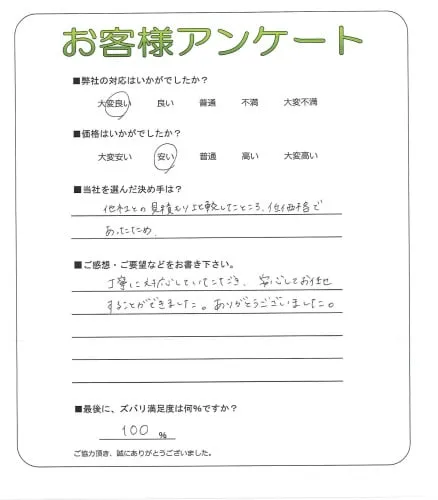 お客様アンケート
■弊社の対応はいかがでしたか？
大変良い 良い 普通 不満 大変不満
■価格はいかがでしたか？
大変安い 安い 普通 高い 大変高い
■当社を選んだ決め手は？
他社との見積もり比較したところ、低価格で
あったため。
■ご感想・ご要望などをお書き下さい。
丁寧に対応していただき、安心してお任せ
することができました。ありがとうございました。
■最後に、ズバリ満足度は何%ですか？
100 %
ご協力頂き、誠にありがとうございました。